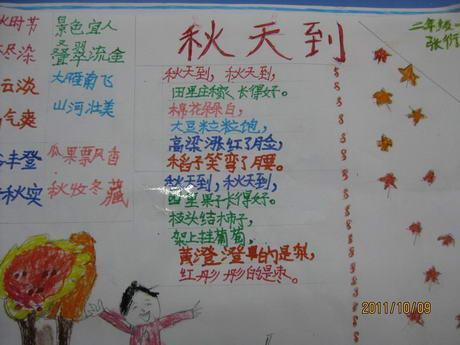 秋天到
二年级
秋天到，秋天到，
田里庄稼长得好。
棉花朵朵白，
大豆粒粒饱，
高梁涨红了脸，
稻子笑弯了腰。
秋天到，秋天到，
园里果子长得好。
枝头结柿子，
架上挂葡萄，
黄澄澄的是梨，
红彤彤的是枣。
火时节 景色宜人
尽染 叠翠流金
云淡 大雁南飞
气爽 山河壮美
丰登 瓜果飘香
秋实 秋收冬藏
2011/10/09